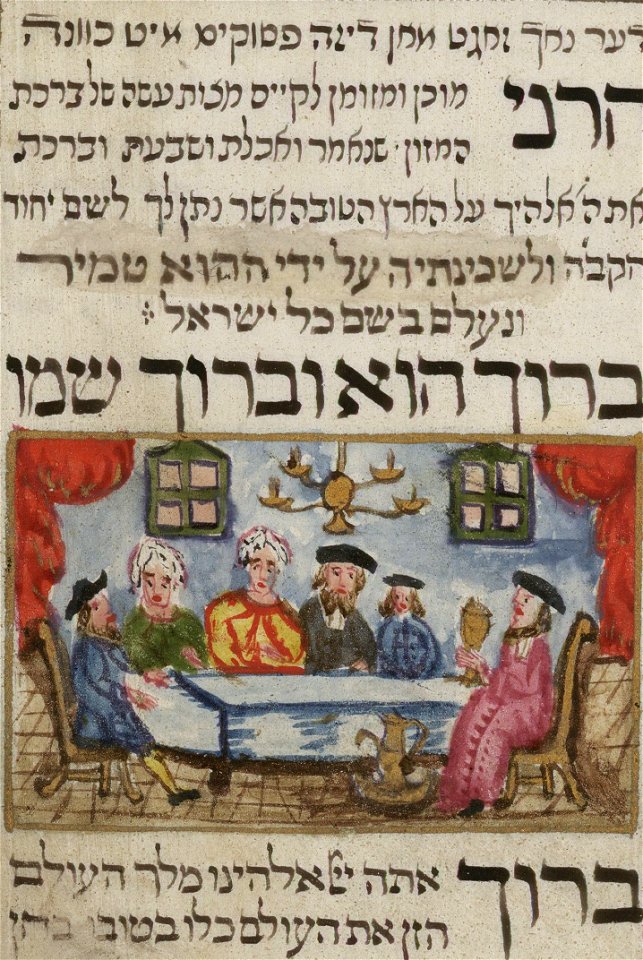 דער נאך זאגט מען דיזה פסוקים מיט כוונה
הרני מוכן ומזומן לקיים מצות עשה של ברכת
המזון שנאמר ואכלת ושבעת וברכת
את ה' אלהיך על הארץ הטובה אשר נתן לך לשם יחוד
הקבה ולשכינתיה על ידי ההוא טמיר
ונעלם בשם כל ישראל:
ברוך הוא וברוך שמו
ברוך אתה יי אלהינו מלך העולם
הזן את העולם כלו בטובו בחן